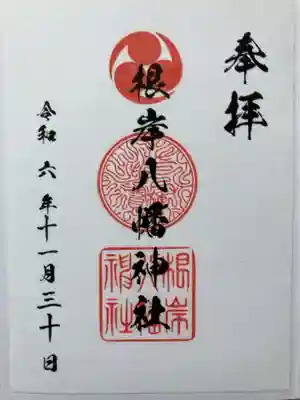 奉拝
根岸八幡神社
令和六年十一月三十日
根岸
神社